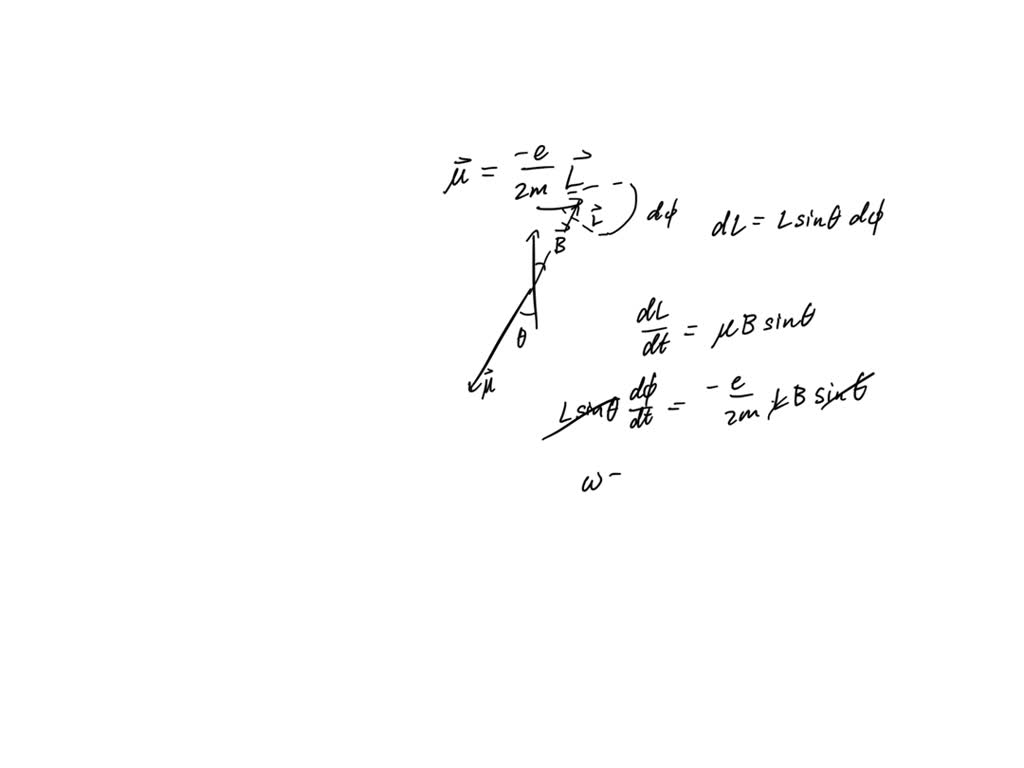 μ⃗ = -e/2m L⃗
L⃗
dϕ
dL = L sinθ dϕ
B⃗
θ
μ⃗
dL/dt = μ B sinθ
L sinθ dϕ/dt = -e/2m L B sinθ
ω -